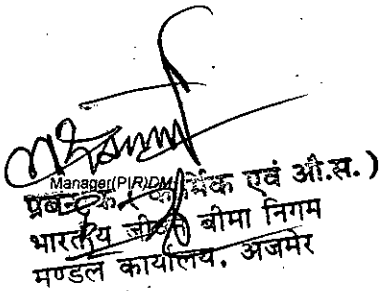 Manager(P&IR)DM
प्रबन्धक (कार्मिक एवं औ.स.)
भारतीय जीवन बीमा निगम
मण्डल कार्यालय, अजमेर